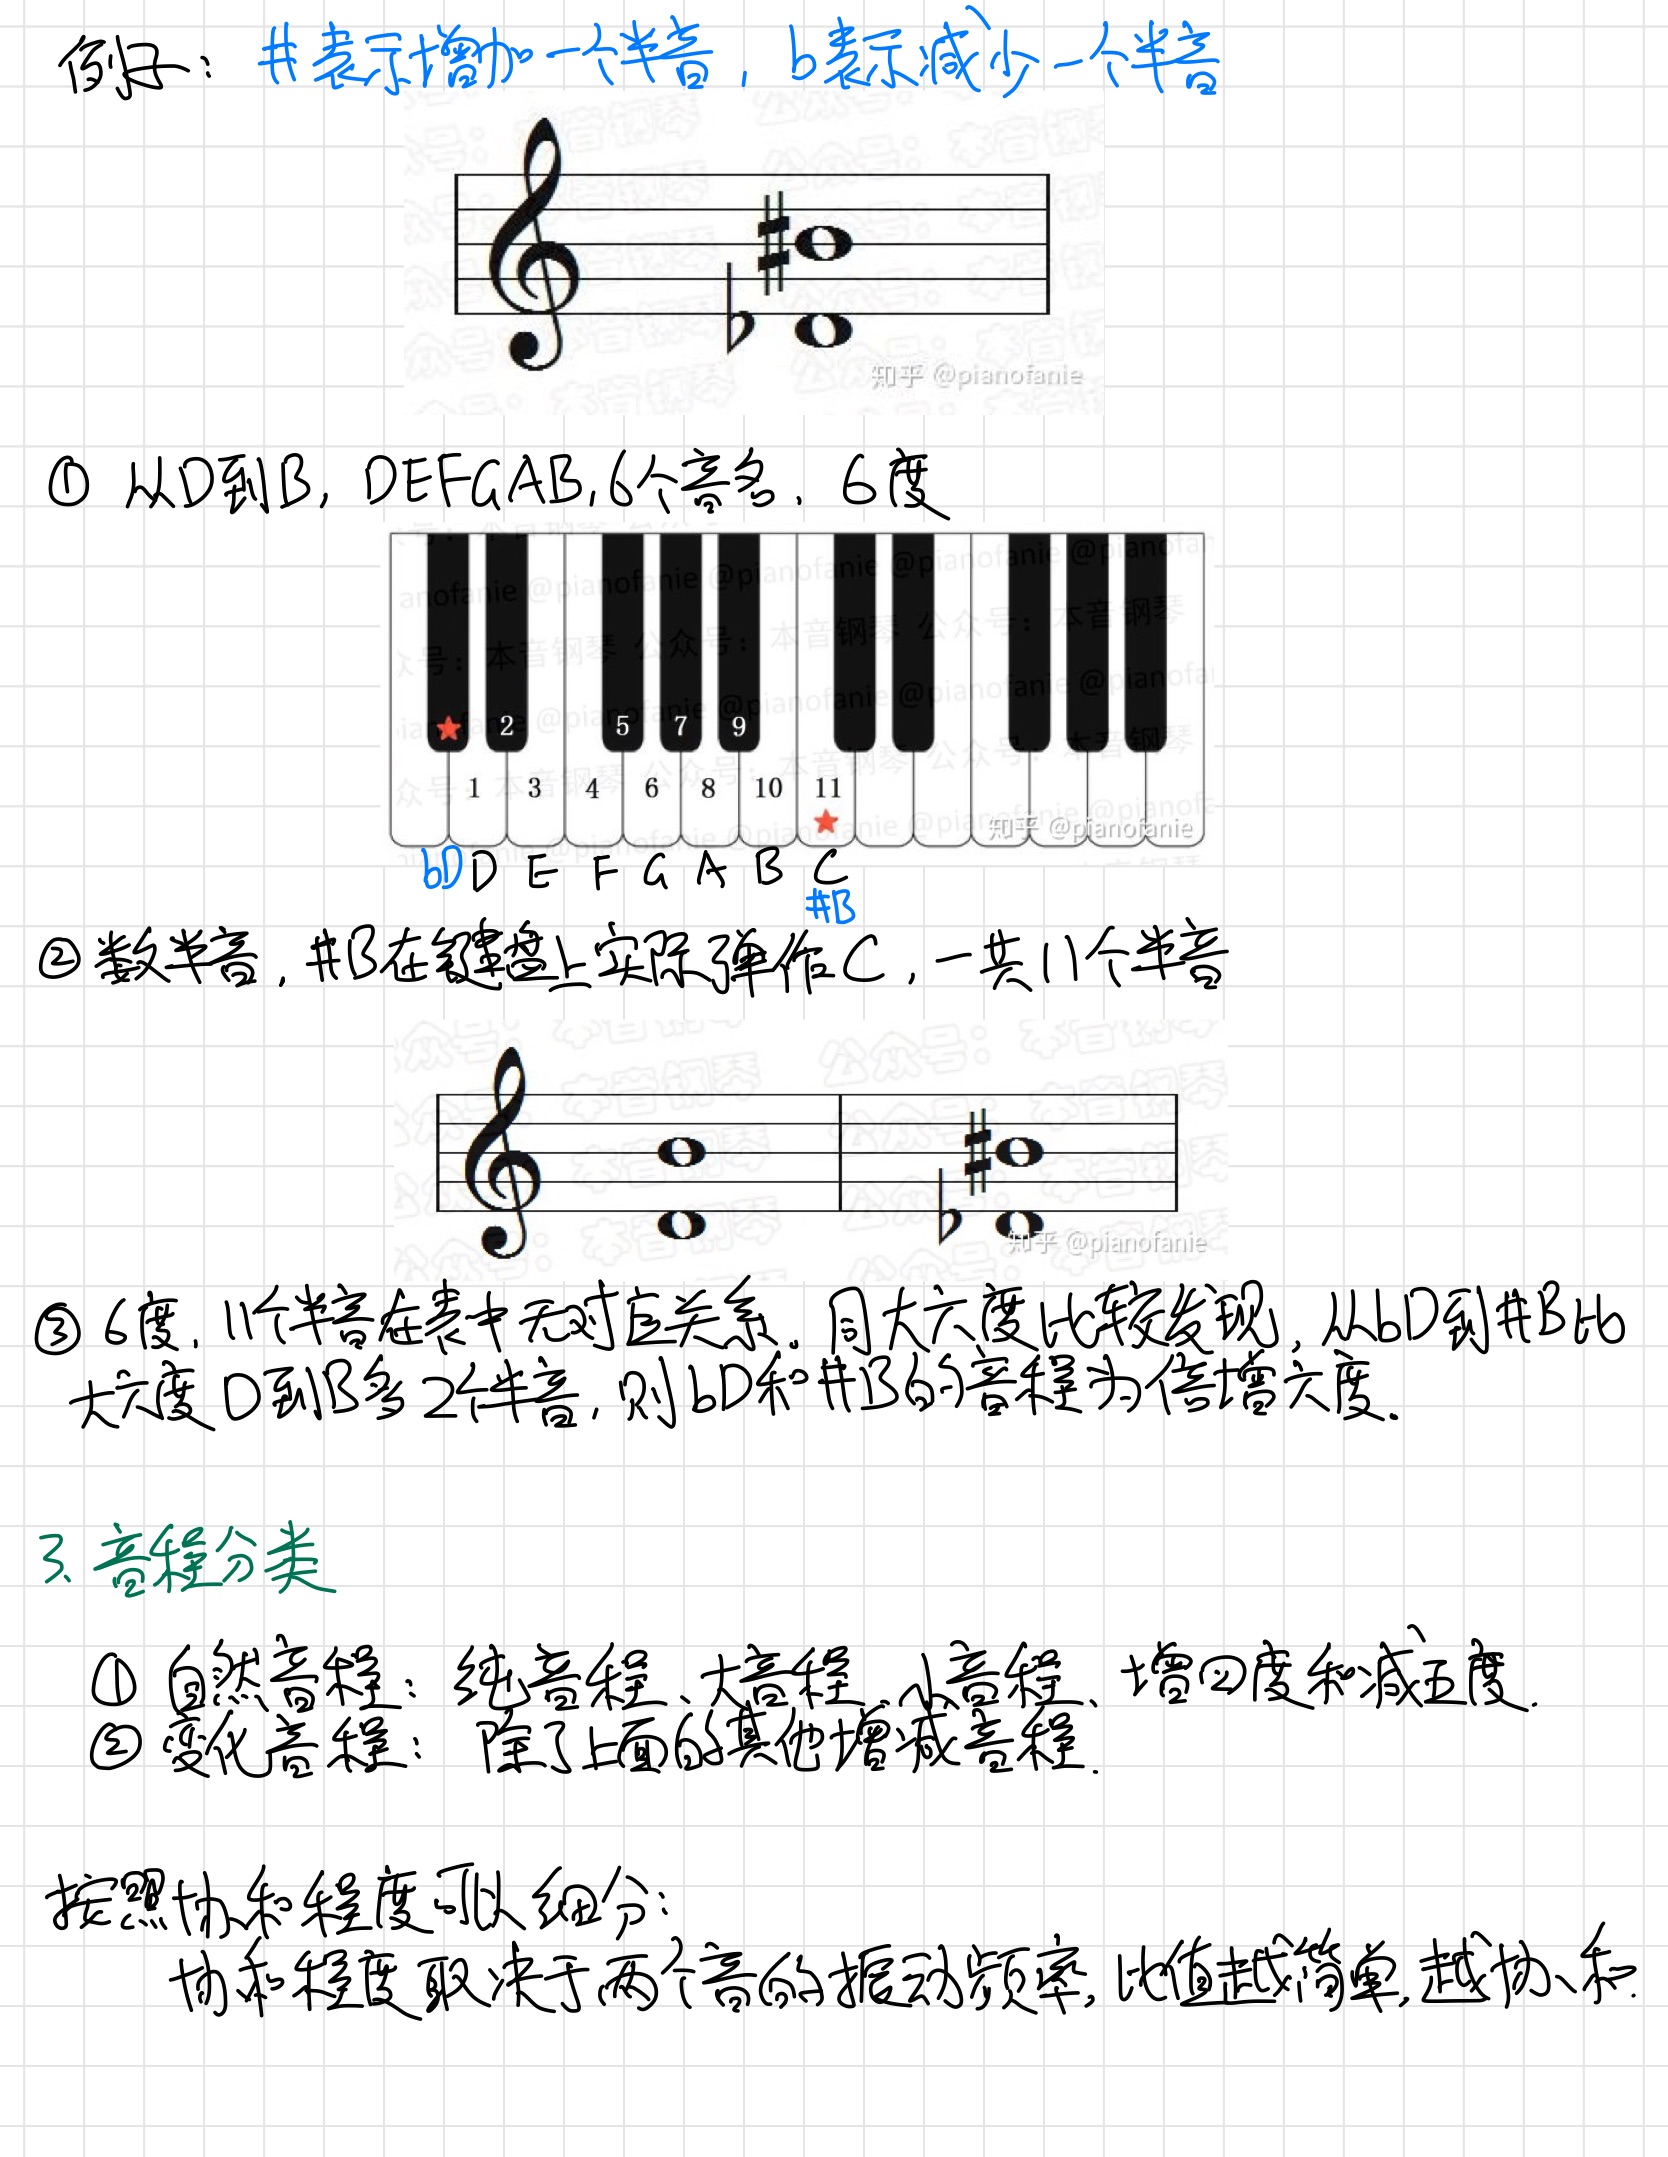 例子: #表示增加一个半音, b表示减少一个半音
知乎 @pianofanie
① 从D到B, DEFGAB, 6个音名, 6度
2 5 7 9
1 3 4 6 8 10 11
知乎 @pianofanie
bD D E F G A B C
#B
② 数半音, #B在键盘上实际弹作C, 一共11个半音
知乎 @pianofanie
③ 6度, 11个半音在表中无对应关系。同大六度比较发现, 从bD到#B比
大六度D到B多2个半音, 则bD和#B的音程为倍增六度.
3. 音程分类
① 自然音程: 纯音程、大音程、小音程、增四度和减五度.
② 变化音程: 除了上面的其他增减音程.
按照协和程度可以细分:
协和程度取决于两个音的振动频率, 比值越简单, 越协和.